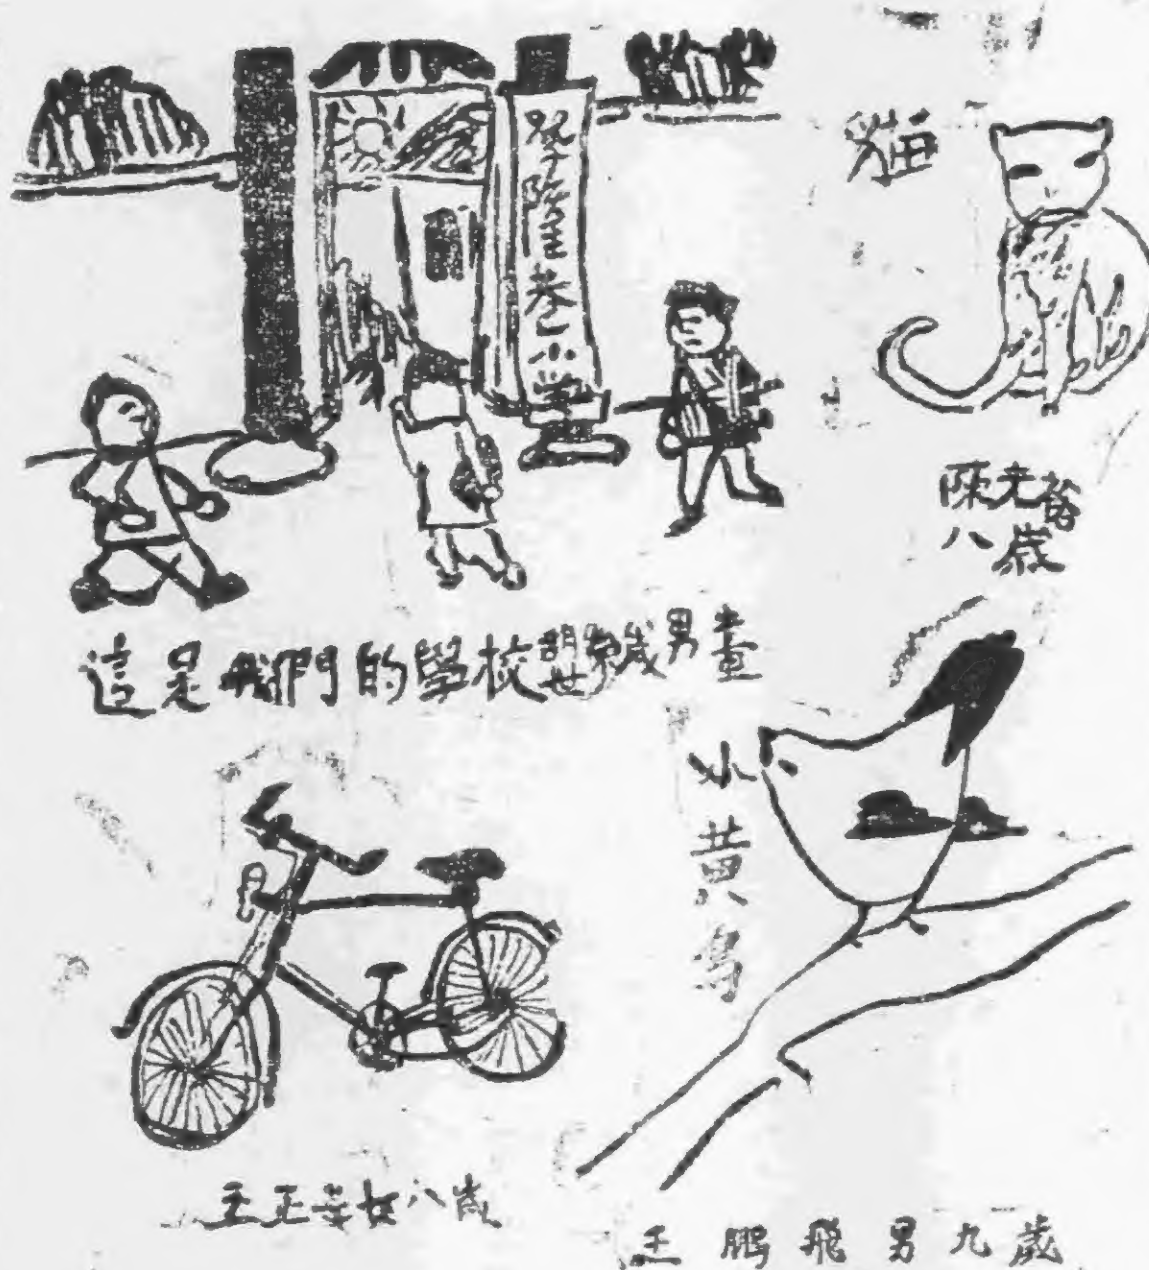 貓
陳光裕
八歲
這是我們的學校 胡世 歲男畫
小黃鳥
王正 女八歲
王鵬飛男九歲